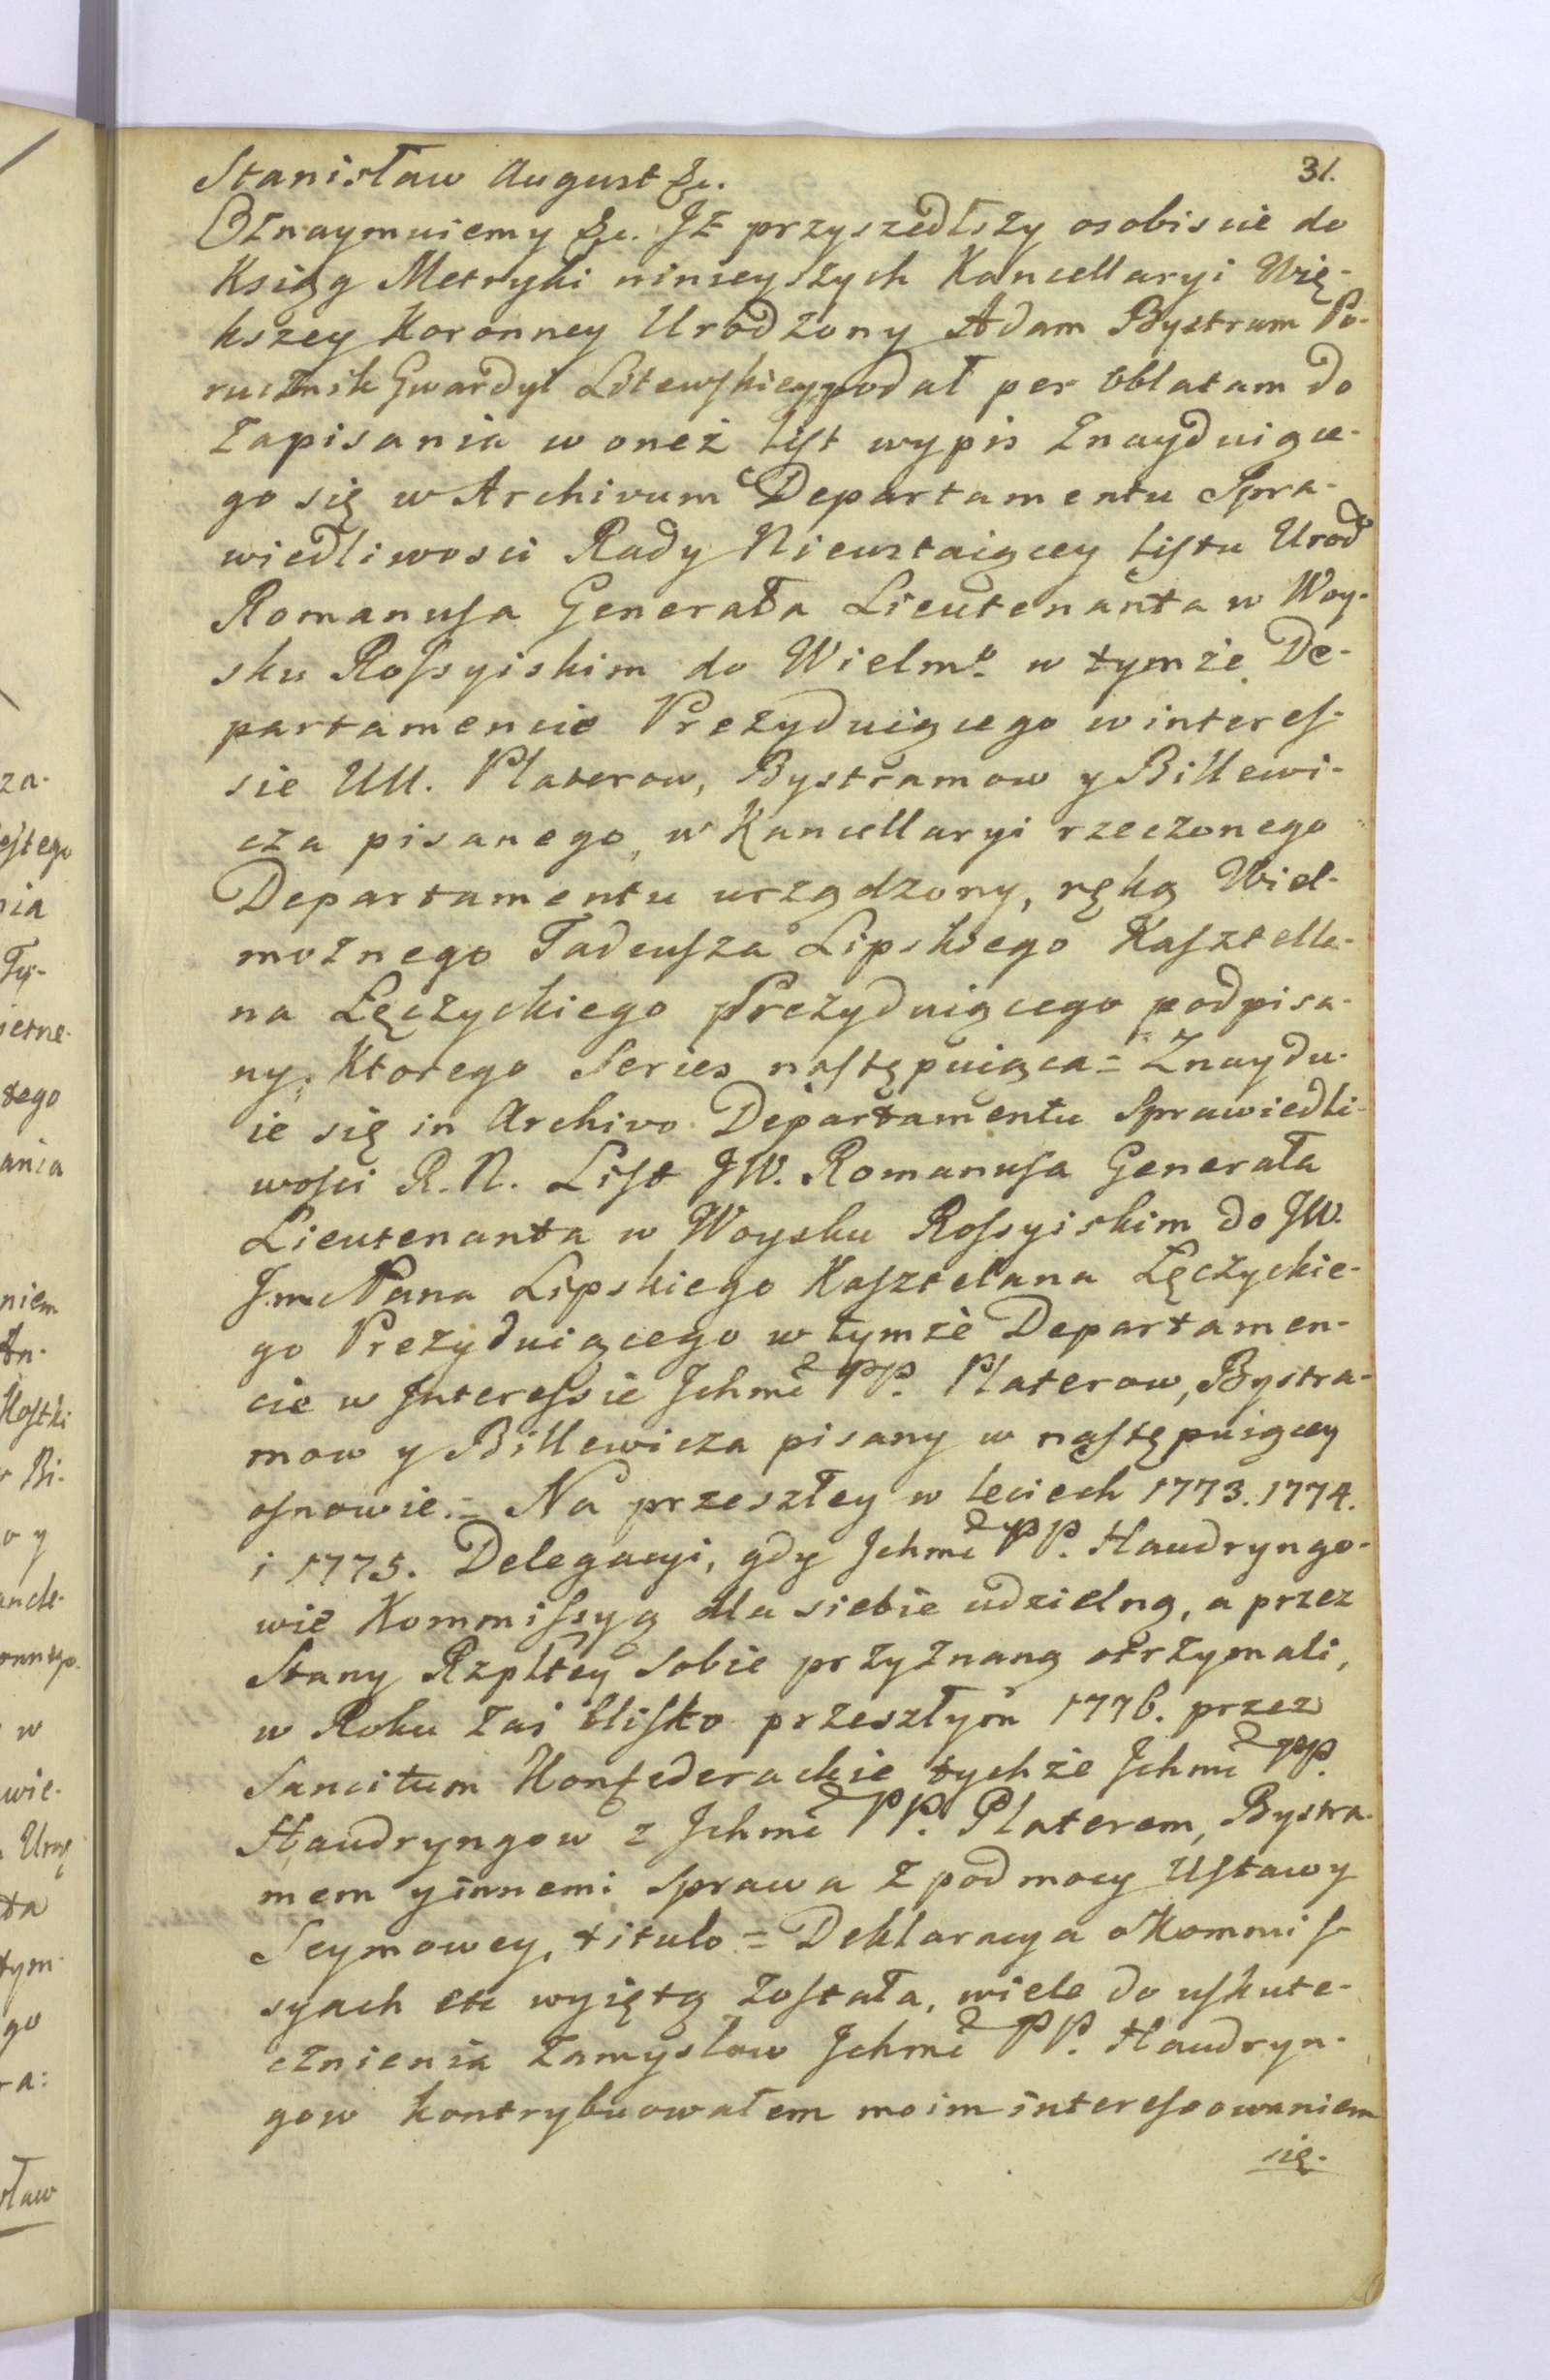 31.
Stanisław August &c.
Oznaymuiemy &c. Iż przyszedłszy osobiscie do
Ksiąg Metryki ninieyszych Kancellaryi Wię-
kszey Koronney Urodzony Adam Bystram Po-
rucznik Gwardyi Litewskiey podał per Oblatam do
zapisania w oneż list wypis znayduiące-
go się w Archivum Departamentu Spra-
wiedliwosci Rady Nieustaiącey listu Urodo
Romanusa Generała Lieutenanta w Woy-
sku Rossyiskim do Wielmo w tymże De-
partamencie Prezyduiącego w interes-
sie UU. Platerow, Bystramow y Billewi-
cza pisanego, w Kancellaryi rzeczonego
Departamentu urządzony, ręką Wiel-
możnego Tadeusza Lipskiego Kasztella-
na Łęczyckiego Prezyduiącego podpisa-
ny. Ktorego Series następuiąca = Znaydu-
ie się in Archivo Departamentu Sprawiedli-
wości R. N. List JW. Romanusa Generała
Lieutenanta w Woysku Rossyiskim do JW.
Jmc Pana Lipskiego Kasztelana Łęczyckie-
go Prezyduiącego w tymże Departamen-
cie w Interessie Ichmć PP. Platerow, Bystra-
mow y Billewicza pisany w następuiącey
osnowie. = Na przeszłey w leciech 1773. 1774.
i 1775. Delegacyi, gdy Ichmć PP. Haudryngo-
wie Kommissyą dla siebie udzielną, a przez
Stany Rzpltey sobie przyznaną otrzymali,
w Roku zaś blisko przeszłym 1776. przez
Sancitum Konfederackie tychże Ichmć PP.
Haudryngow z Ichmć PP. Platerem, Bystra-
mem y innemi sprawa z pod mocy Ustawy
Seymowey, titulo = Deklaracya o Kommis-
syach etc wyiętą została, wiele do uskute-
cznienia zamysłow Ichmć PP. Haudryn-
gow kontrybuowałem moim interessowaniem
się.
za-
estego
nia
Ty-
ietne-
tego
ania
niem
tn-
Kostki
Bi-
o y
ancle-
w
wie-
ta
tym-
go
ra:
sław